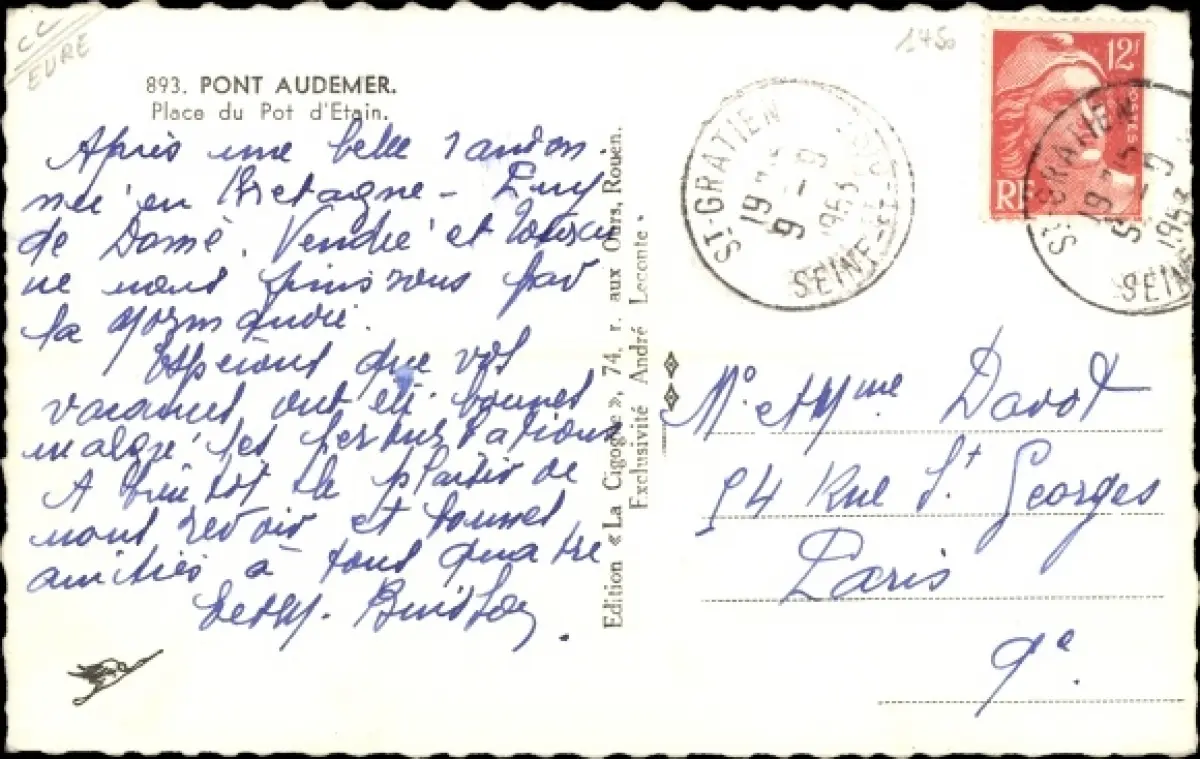 CC
EURE
1450
893. PONT AUDEMER.
Place du Pot d'Etain.
Après une belle randon
née en Bretagne - Puy
de Dome, Vendée et
ne nous finissons par
la Normandie.
Espérons que vos
vacances ont été bonnes
malgré les perturbations
A bientôt le plaisir de
vous revoir et bonnes
amitiés à tous quatre
Edition « La Cigogne », 74, r. aux Ours, Rouen.
Exclusivité André Leconte.
12F
POSTES
RF
ST-GRATIEN
19
9 - 9
1953
SEINE-ET-OISE
ST-GRATIEN
19 15
9
1953
SEINE
Mr et Mme Davot
54 Rue St Georges
Paris
9e.